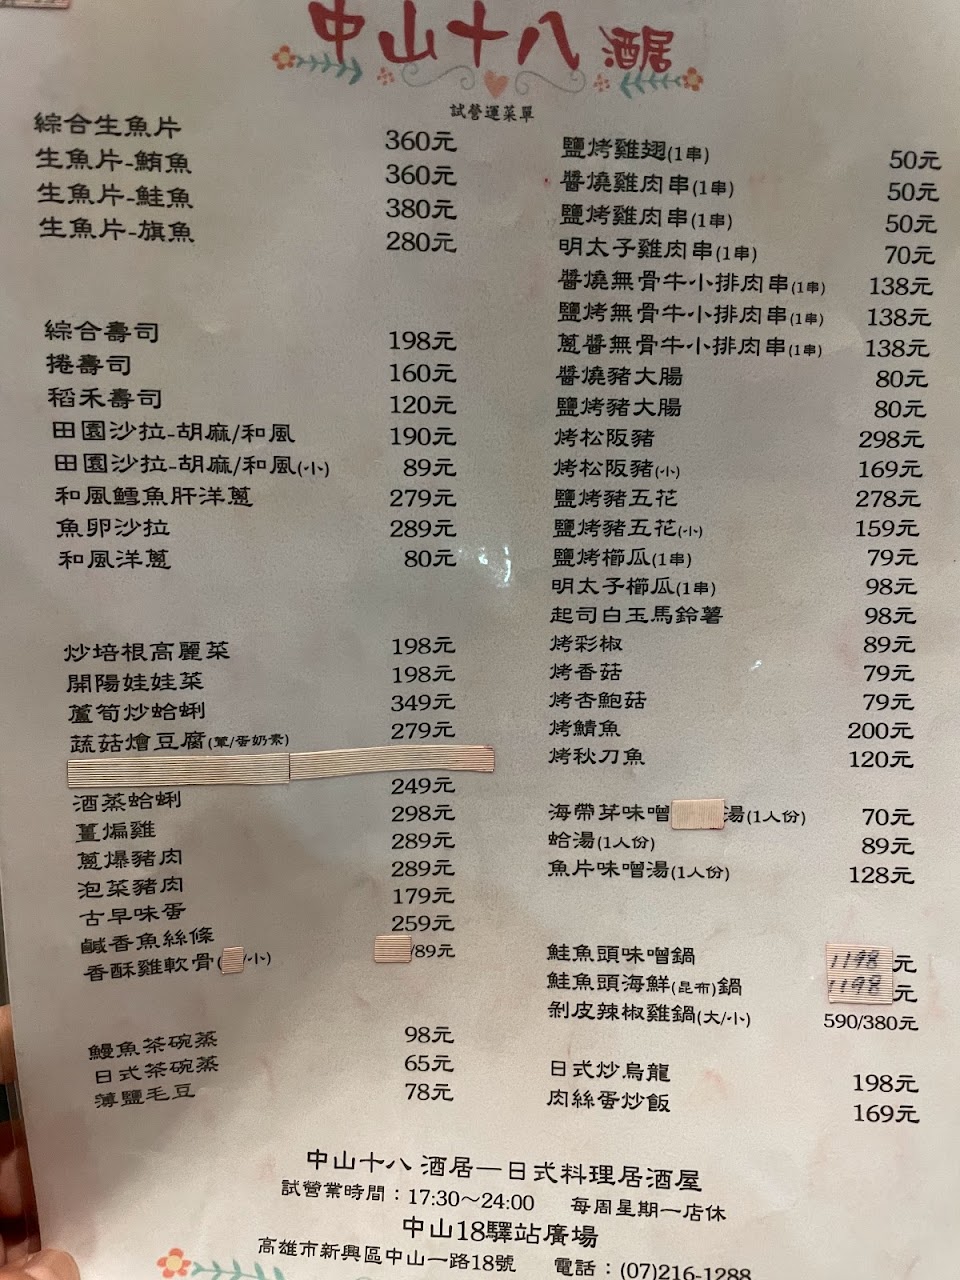 中山十八 酒居
試營運菜單
綜合生魚片 360元
生魚片-鮪魚 360元
生魚片-鮭魚 380元
生魚片-旗魚 280元
綜合壽司 198元
捲壽司 160元
稻禾壽司 120元
田園沙拉-胡麻/和風 190元
田園沙拉-胡麻/和風(小) 89元
和風鱈魚肝洋蔥 279元
魚卵沙拉 289元
和風洋蔥 80元
炒培根高麗菜 198元
開陽娃娃菜 198元
蘆筍炒蛤蜊 349元
蔬菇燴豆腐(葷/蛋奶素) 279元
酒蒸蛤蜊 249元
薑煸雞 298元
蔥爆豬肉 289元
泡菜豬肉 289元
古早味蛋 179元
鹹香魚絲條 259元
香酥雞軟骨( /小) /89元
鰻魚茶碗蒸 98元
日式茶碗蒸 65元
薄鹽毛豆 78元
鹽烤雞翅(1串) 50元
醬燒雞肉串(1串) 50元
鹽烤雞肉串(1串) 50元
明太子雞肉串(1串) 70元
醬燒無骨牛小排肉串(1串) 138元
鹽烤無骨牛小排肉串(1串) 138元
蔥醬無骨牛小排肉串(1串) 138元
醬燒豬大腸 80元
鹽烤豬大腸 80元
烤松阪豬 298元
烤松阪豬(小) 169元
鹽烤豬五花 278元
鹽烤豬五花(小) 159元
鹽烤櫛瓜(1串) 79元
明太子櫛瓜(1串) 98元
起司白玉馬鈴薯 98元
烤彩椒 89元
烤香菇 79元
烤杏鮑菇 79元
烤鯖魚 200元
烤秋刀魚 120元
海帶芽味噌 湯(1人份) 70元
蛤湯(1人份) 89元
魚片味噌湯(1人份) 128元
鮭魚頭味噌鍋 1198元
鮭魚頭海鮮(昆布)鍋 1198元
剝皮辣椒雞鍋(大/小) 590/380元
日式炒烏龍 198元
肉絲蛋炒飯 169元
中山十八 酒居—日式料理居酒屋
試營業時間：17:30～24:00 每周星期一店休
中山18驛站廣場
高雄市新興區中山一路18號 電話：(07)216-1288